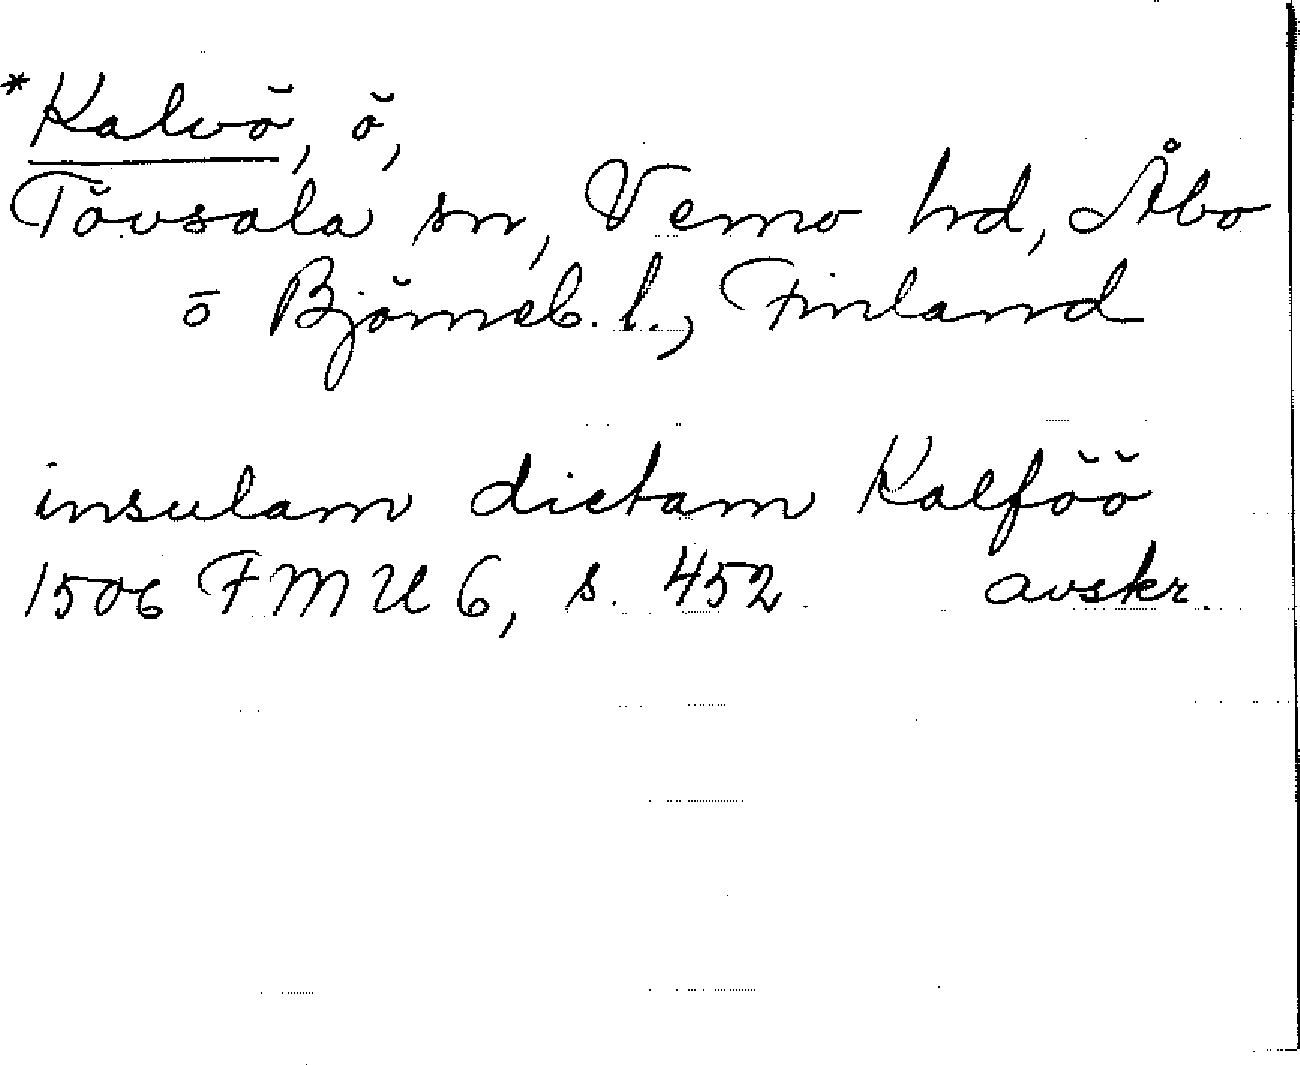 *Kalvö, ö,
Tövsala sn, Vemo hd, Åbo
o Björneb. l., Finland
insulam dictam Kalföö
1506 FMU 6, s. 452 avskr.